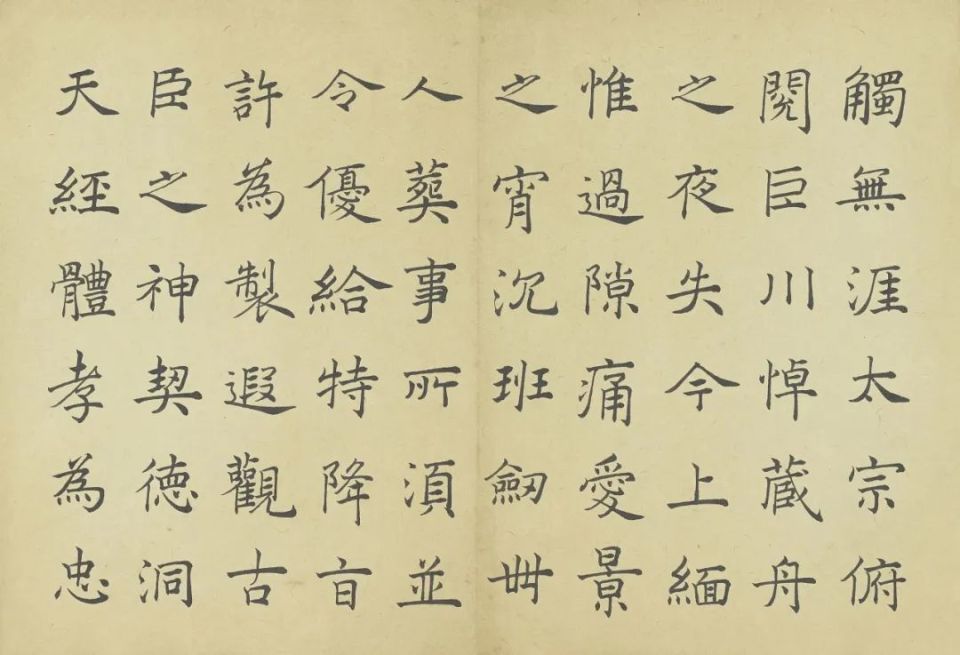 觸無涯太宗俯
閱巨川悼蔵舟
之夜失今上緬
惟過隙痛愛景
之宵沉班劔丗
人葬事所湏並
令優給特降㫖
許為製遐觀古
臣之神契徳洞
天經體孝為忠